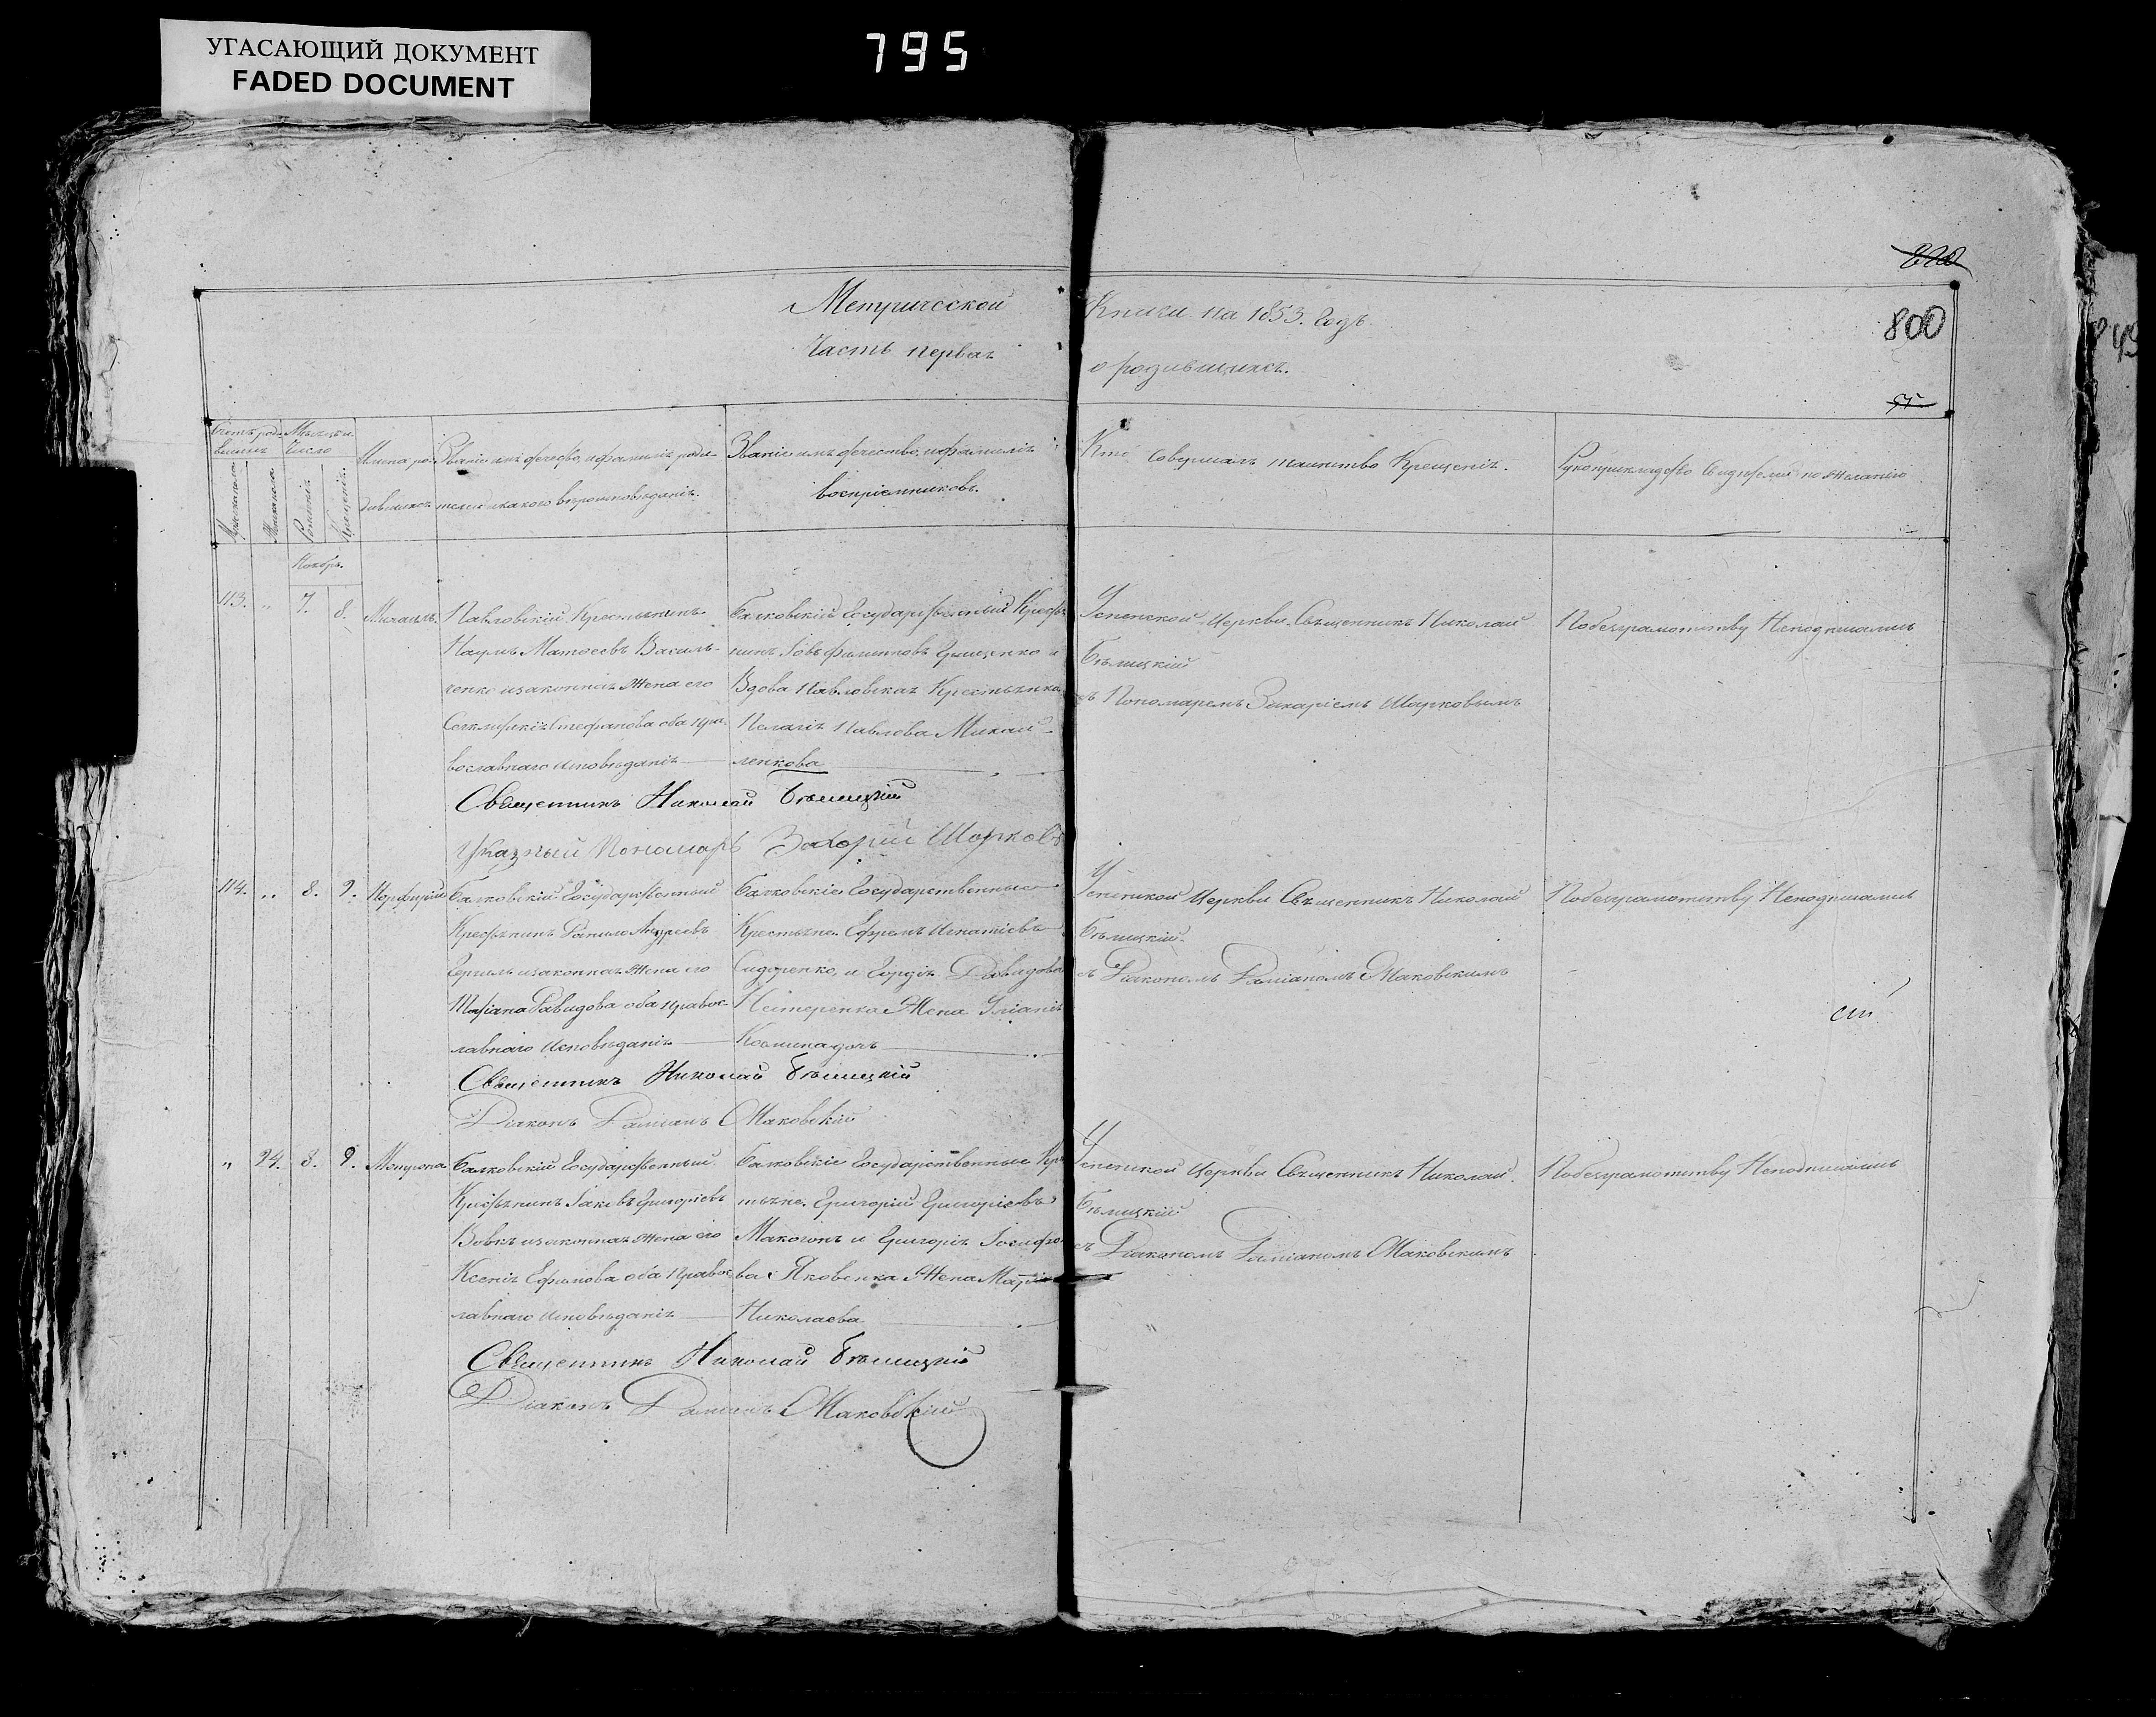 УГАСАЮЩИЙ ДОКУМЕНТ
FADED DOCUMENT
795
800
Метрической Книги на 1853. Годъ.
Часть первая о родившихся.
Мѣсяцъ и
Число
Званіе имя отчество, и фамилія роди-
телей и какого вѣроисповѣданія.
Званіе имя отчество, и фамилія
воспріемниковъ.
Кто совершалъ таинство Крещенія.
Рукоприкладство свидѣтелей по желанію
Рожденія
Крещенія
Ноябр.
113. „ 7. 8. Михаилъ.
Павловскій Крестьянинъ
Наумъ Матѳеевъ Василь-
ченко и законная Жена его
Стефанова оба пра-
вославнаго исповѣданія
Балковскій Государственный Кресть-
нинъ Іовъ Филиповъ Грищенко и
Вдова Павловская Крестьянка
Пелагія Павлова Михай-
ленкова
Успенской Церкви Священникъ Николай
Бѣлицкій
съ Пономаремъ Захаріемъ Шарковымъ
По безграмотству Неподписались
Священникъ Николай Бѣлицкій
Указный Пономарь Захорій Шорковъ
114. „ 8. 9. Порфирій
Балковскій Государственный
Крестьянинъ Данило Андреевъ
и законная Жена его
Давидова оба правос-
лавнаго исповѣданія
Балковскіе Государственные
Крестьяне. Ефремъ Игнатіевъ
Сидоренко, и Гордія Давидова
Нестеренка Жена Уліанія
Успенской Церкви Священникъ Николай
Бѣлицкій.
съ Діакономъ Даміаномъ Маковскимъ
По безграмотству Неподписались
Священникъ Николай Бѣлицкій
Діаконъ Даміанъ Маковскій
„ 94. 8. 9. Матрона
Балковскій Государственный
Крестьянинъ Іаковъ Григоріевъ
Вовкъ и законная Жена его
Ксенія Ефимова оба Правос-
лавнаго исповѣданія
Балковскіе Государственные Крес-
тьяне. Григорій Григоріевъ
Макогонъ и Григорія Іосифо-
ва Яковенка Жена Марія
Николаева
Успенской Церкви Священникъ Николай
Бѣлицкій
съ Діакономъ Даміаномъ Маковскимъ
По безграмотству Неподписались
Священникъ Николай Бѣлицкій
Діаконъ Даміанъ Маковскій